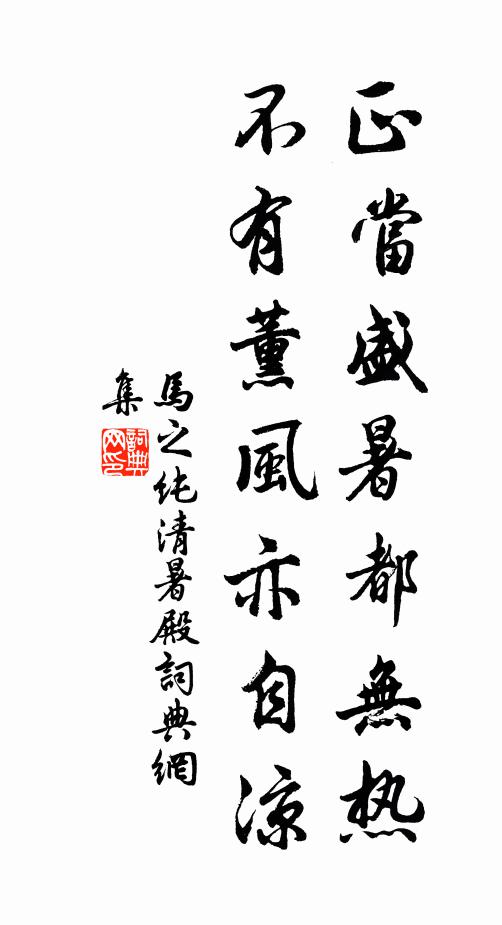 正當盛暑都無热
不有薰風亦自凉
馬之純清暑殿詞典網
集
詞典网印